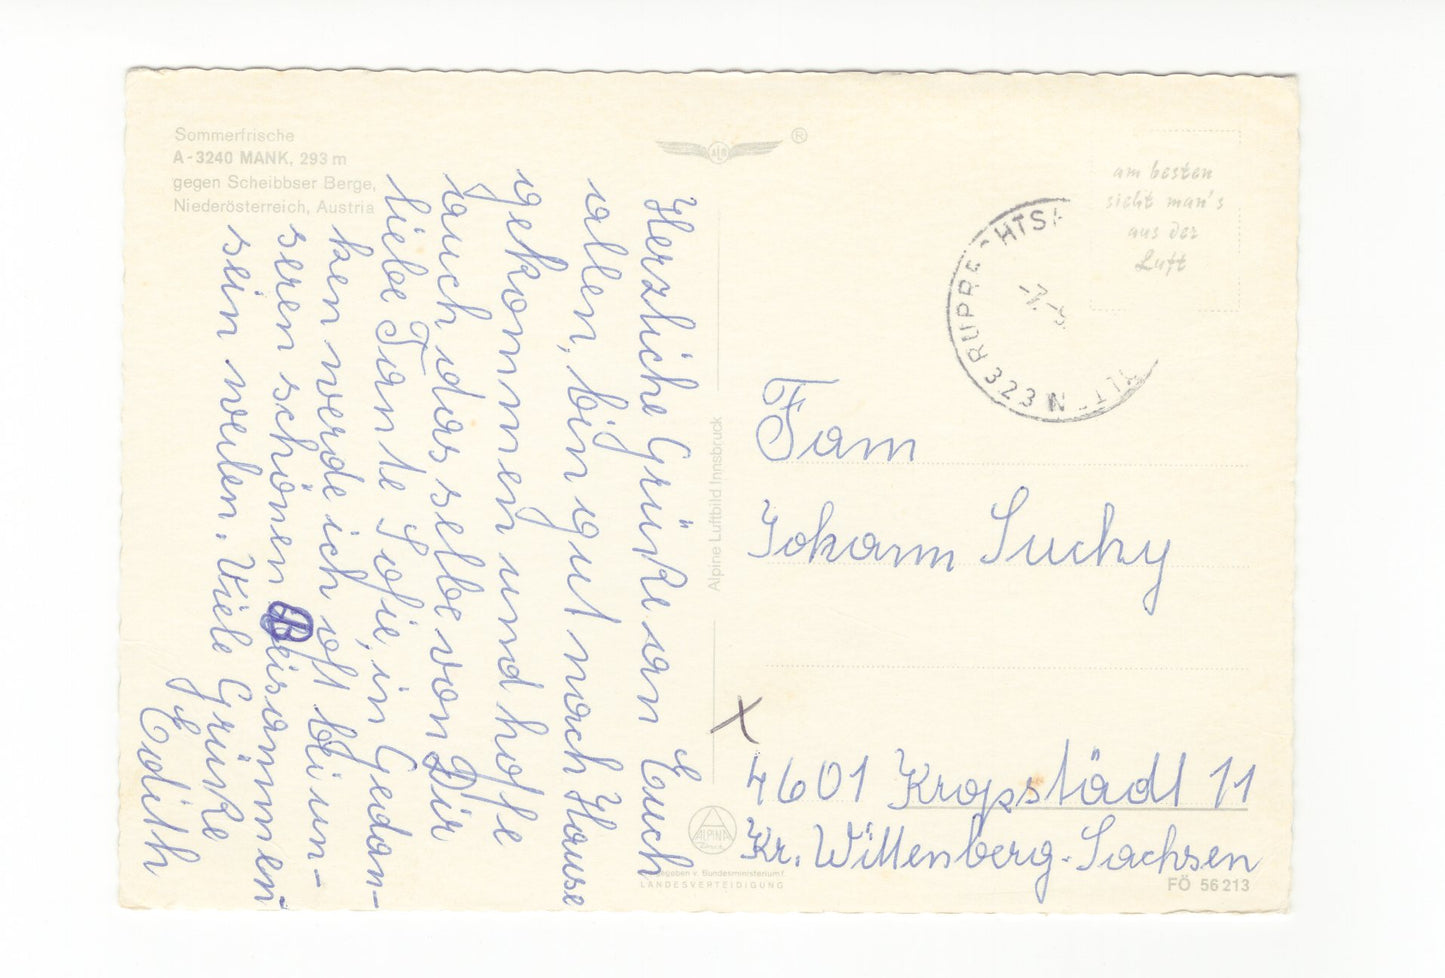 Sommerfrische
A-3240 MANK, 293 m
gegen Scheibbser Berge,
Niederösterreich, Austria
ALB ®
am besten
sieht man's
aus der
Luft
RUPR HTS
323
Herzliche Grüße an Euch
allen, bin gut nach Hause
gekommen und hoffe
auch das selbe von Dir
liebe Tante Sofie, in Gedan-
ken werde ich oft bei un-
seren schönen Beisammen
sein weilen. Viele Grüße
Edith
Alpine Luftbild Innsbruck
Fam
Johann Suchy
X
4601 Kropstädt 11
Kr. Wittenberg-Sachsen
ALPINA
gegeben v. Bundesministerium f.
LANDESVERTEIDIGUNG
FÖ 56 213